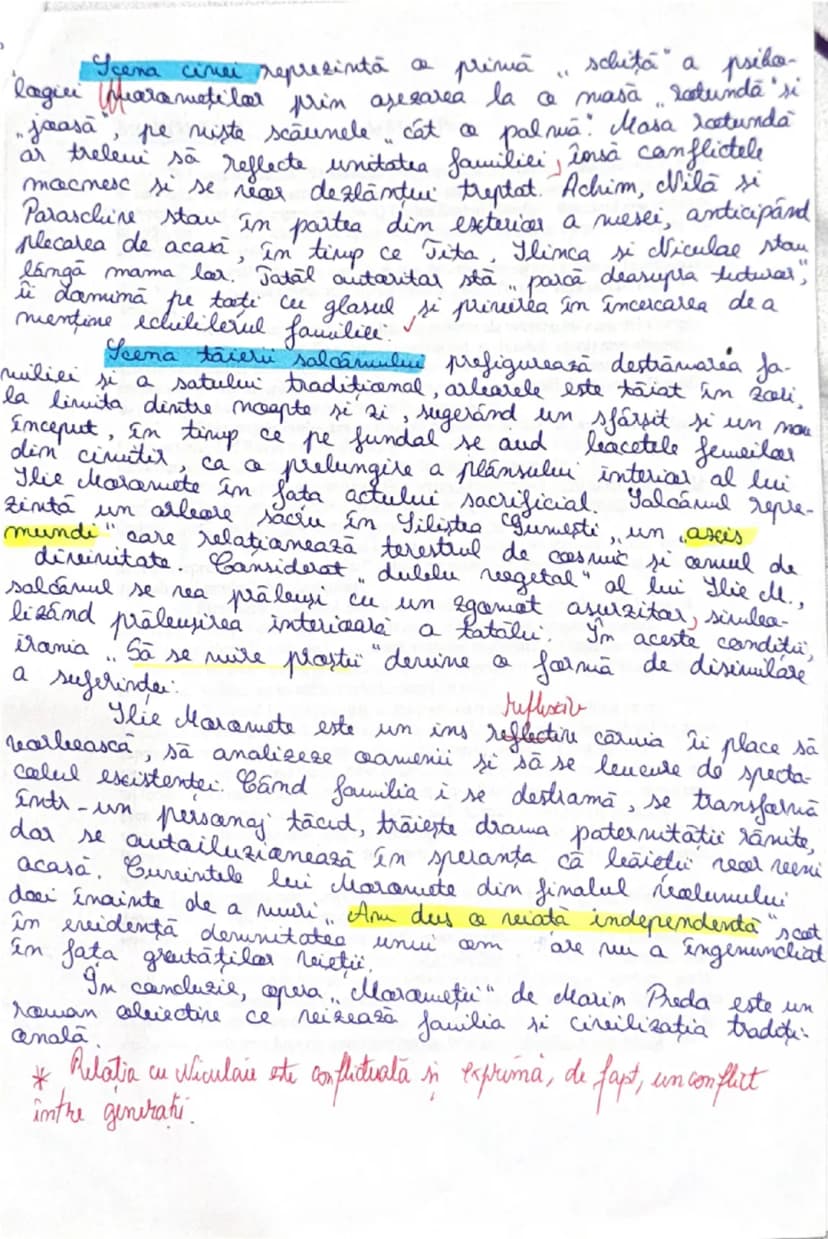 Scena cinei reprezintă o primă „schiță" a psiho-
logiei Moromeților prin așezarea la o masă „rotundă" și
„joasă", pe niște scăunele „cât o palmă". Masa rotundă
ar trebui să reflecte unitatea familiei, însă conflictele
mocnesc și se vor dezlănțui treptat. Achim, Nilă și
Paraschiv stau în partea din exterior a mesei, anticipând
plecarea de acasă, în timp ce Tita, Ilinca și Niculae stau
lângă mama lor. Tatăl autoritar stă „parcă deasupra tuturor",
îi domină pe toți cu glasul și privirea în încercarea de a
menține echilibrul familiei.
Scena tăierii salcâmului prefigurează destrămarea fa-
miliei și a satului tradițional, arborele este tăiat în zori,
la limita dintre noapte și zi, sugerând un sfârșit și un nou
început, în timp ce pe fundal se aud bocetele femeilor
din cimitir, ca o prelungire a plânsului interior al lui
Ilie Moromete în fața actului sacrificial. Salcâmul repre-
zintă un arbore sacru în Siliștea Gumești, un „axis
mundi" care relaționează terestrul de cosmic și omul de
divinitate. Considerat „dublu vegetal" al lui Ilie M.,
salcâmul se va prăbuși cu un zgomot asurzitor, simbo-
lizând prăbușirea interioară a tatălui. În aceste condiții,
ironia „Să se mire proștii" devine o formă de disimulare
a suferinței.
reflexiv
Ilie Moromete este un ins reflectiv căruia îi place să
vorbească, să analizeze oamenii și să se bucure de specta-
colul existenței. Când familia i se destramă, se transformă
într-un personaj tăcut, trăiește drama paternității rănite,
dar se autoiluzionează în speranța că băieții vor veni
acasă. Cuvintele lui Moromete din finalul volumului
doi înainte de a muri „Am dus o viață independentă" scot
în evidență demnitatea unui om are nu a îngenuncheat
în fața greutăților vieții.
În concluzie, opera „Moromeții" de Marin Preda este un
roman obiectiv ce vizează familia și civilizația tradiți-
onală.
* Relația cu Niculaie este conflictuală și exprimă, de fapt, un conflict
între generații.